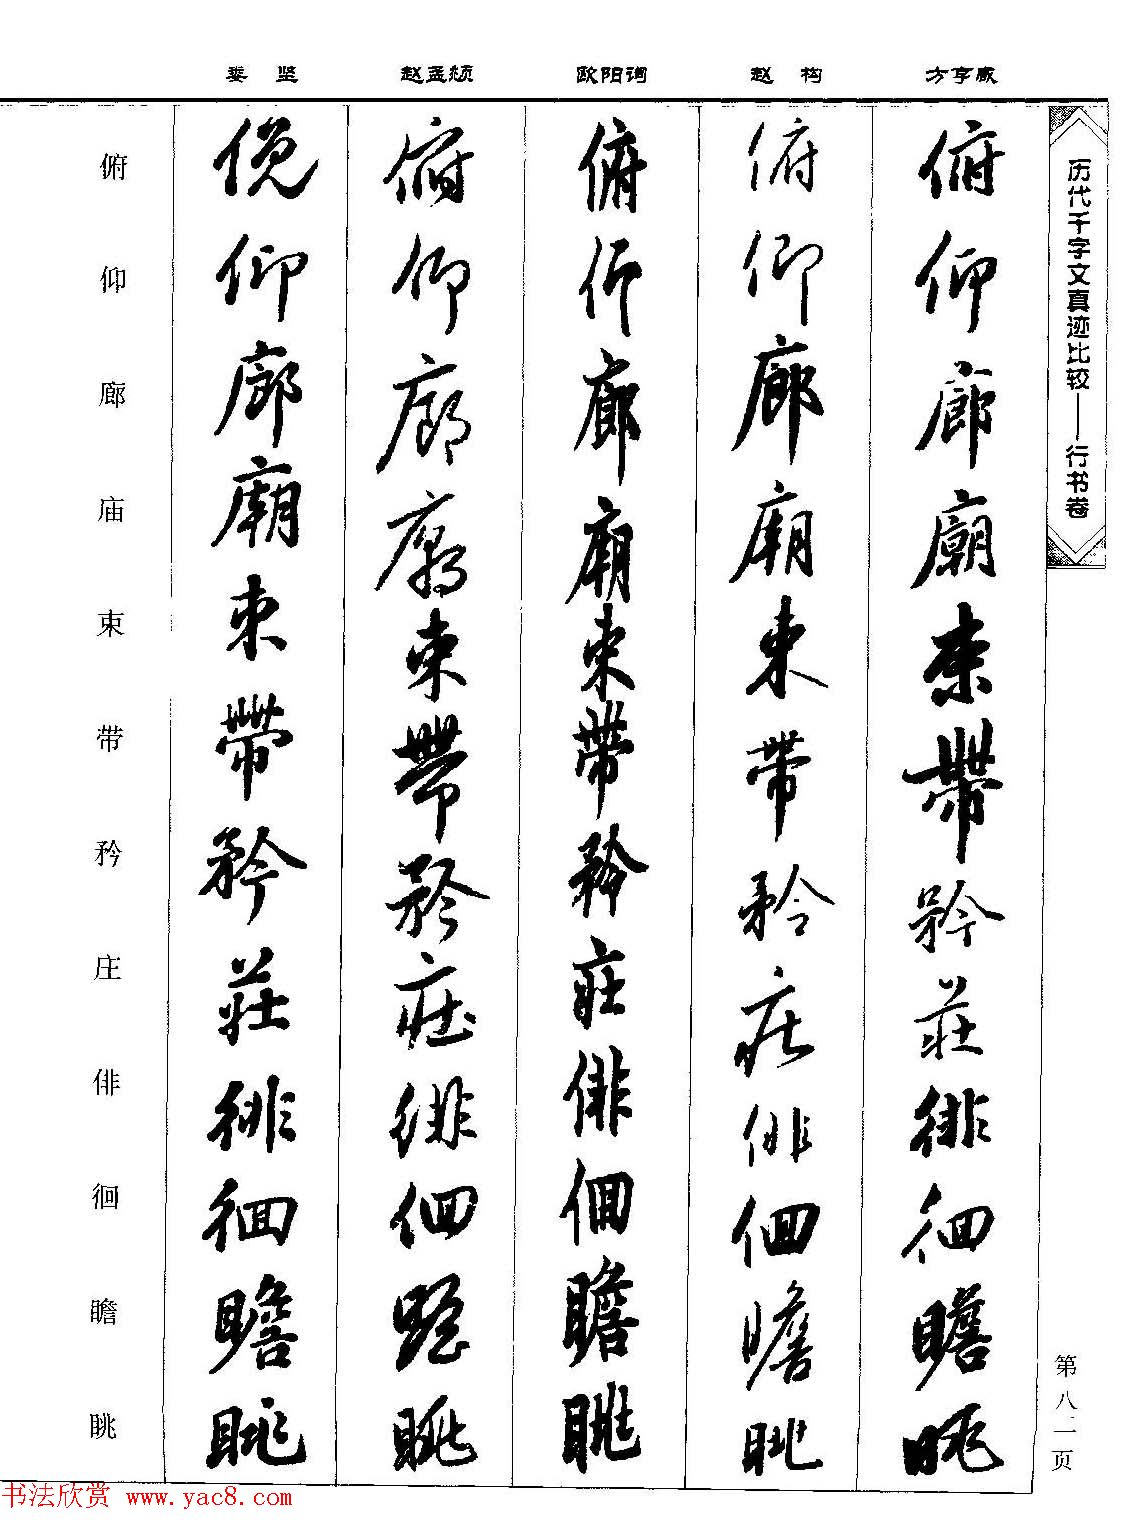 历代千字文真迹比较——行书卷
第八二页
方亨咸
俯仰廊廟束帶矜莊徘徊瞻眺
赵构
俯仰廊廟束帶矜庄俳佪瞻眺
欧阳询
俯仰廊廟束帶矜庄俳佪瞻眺
赵孟頫
俯仰廊廟束帶矜庄徘佪瞻眺
娄坚
俛仰廊廟束帶矜莊徘徊瞻眺
俯仰廊庙束带矜庄俳徊瞻眺
书法欣赏 www.yac8.com